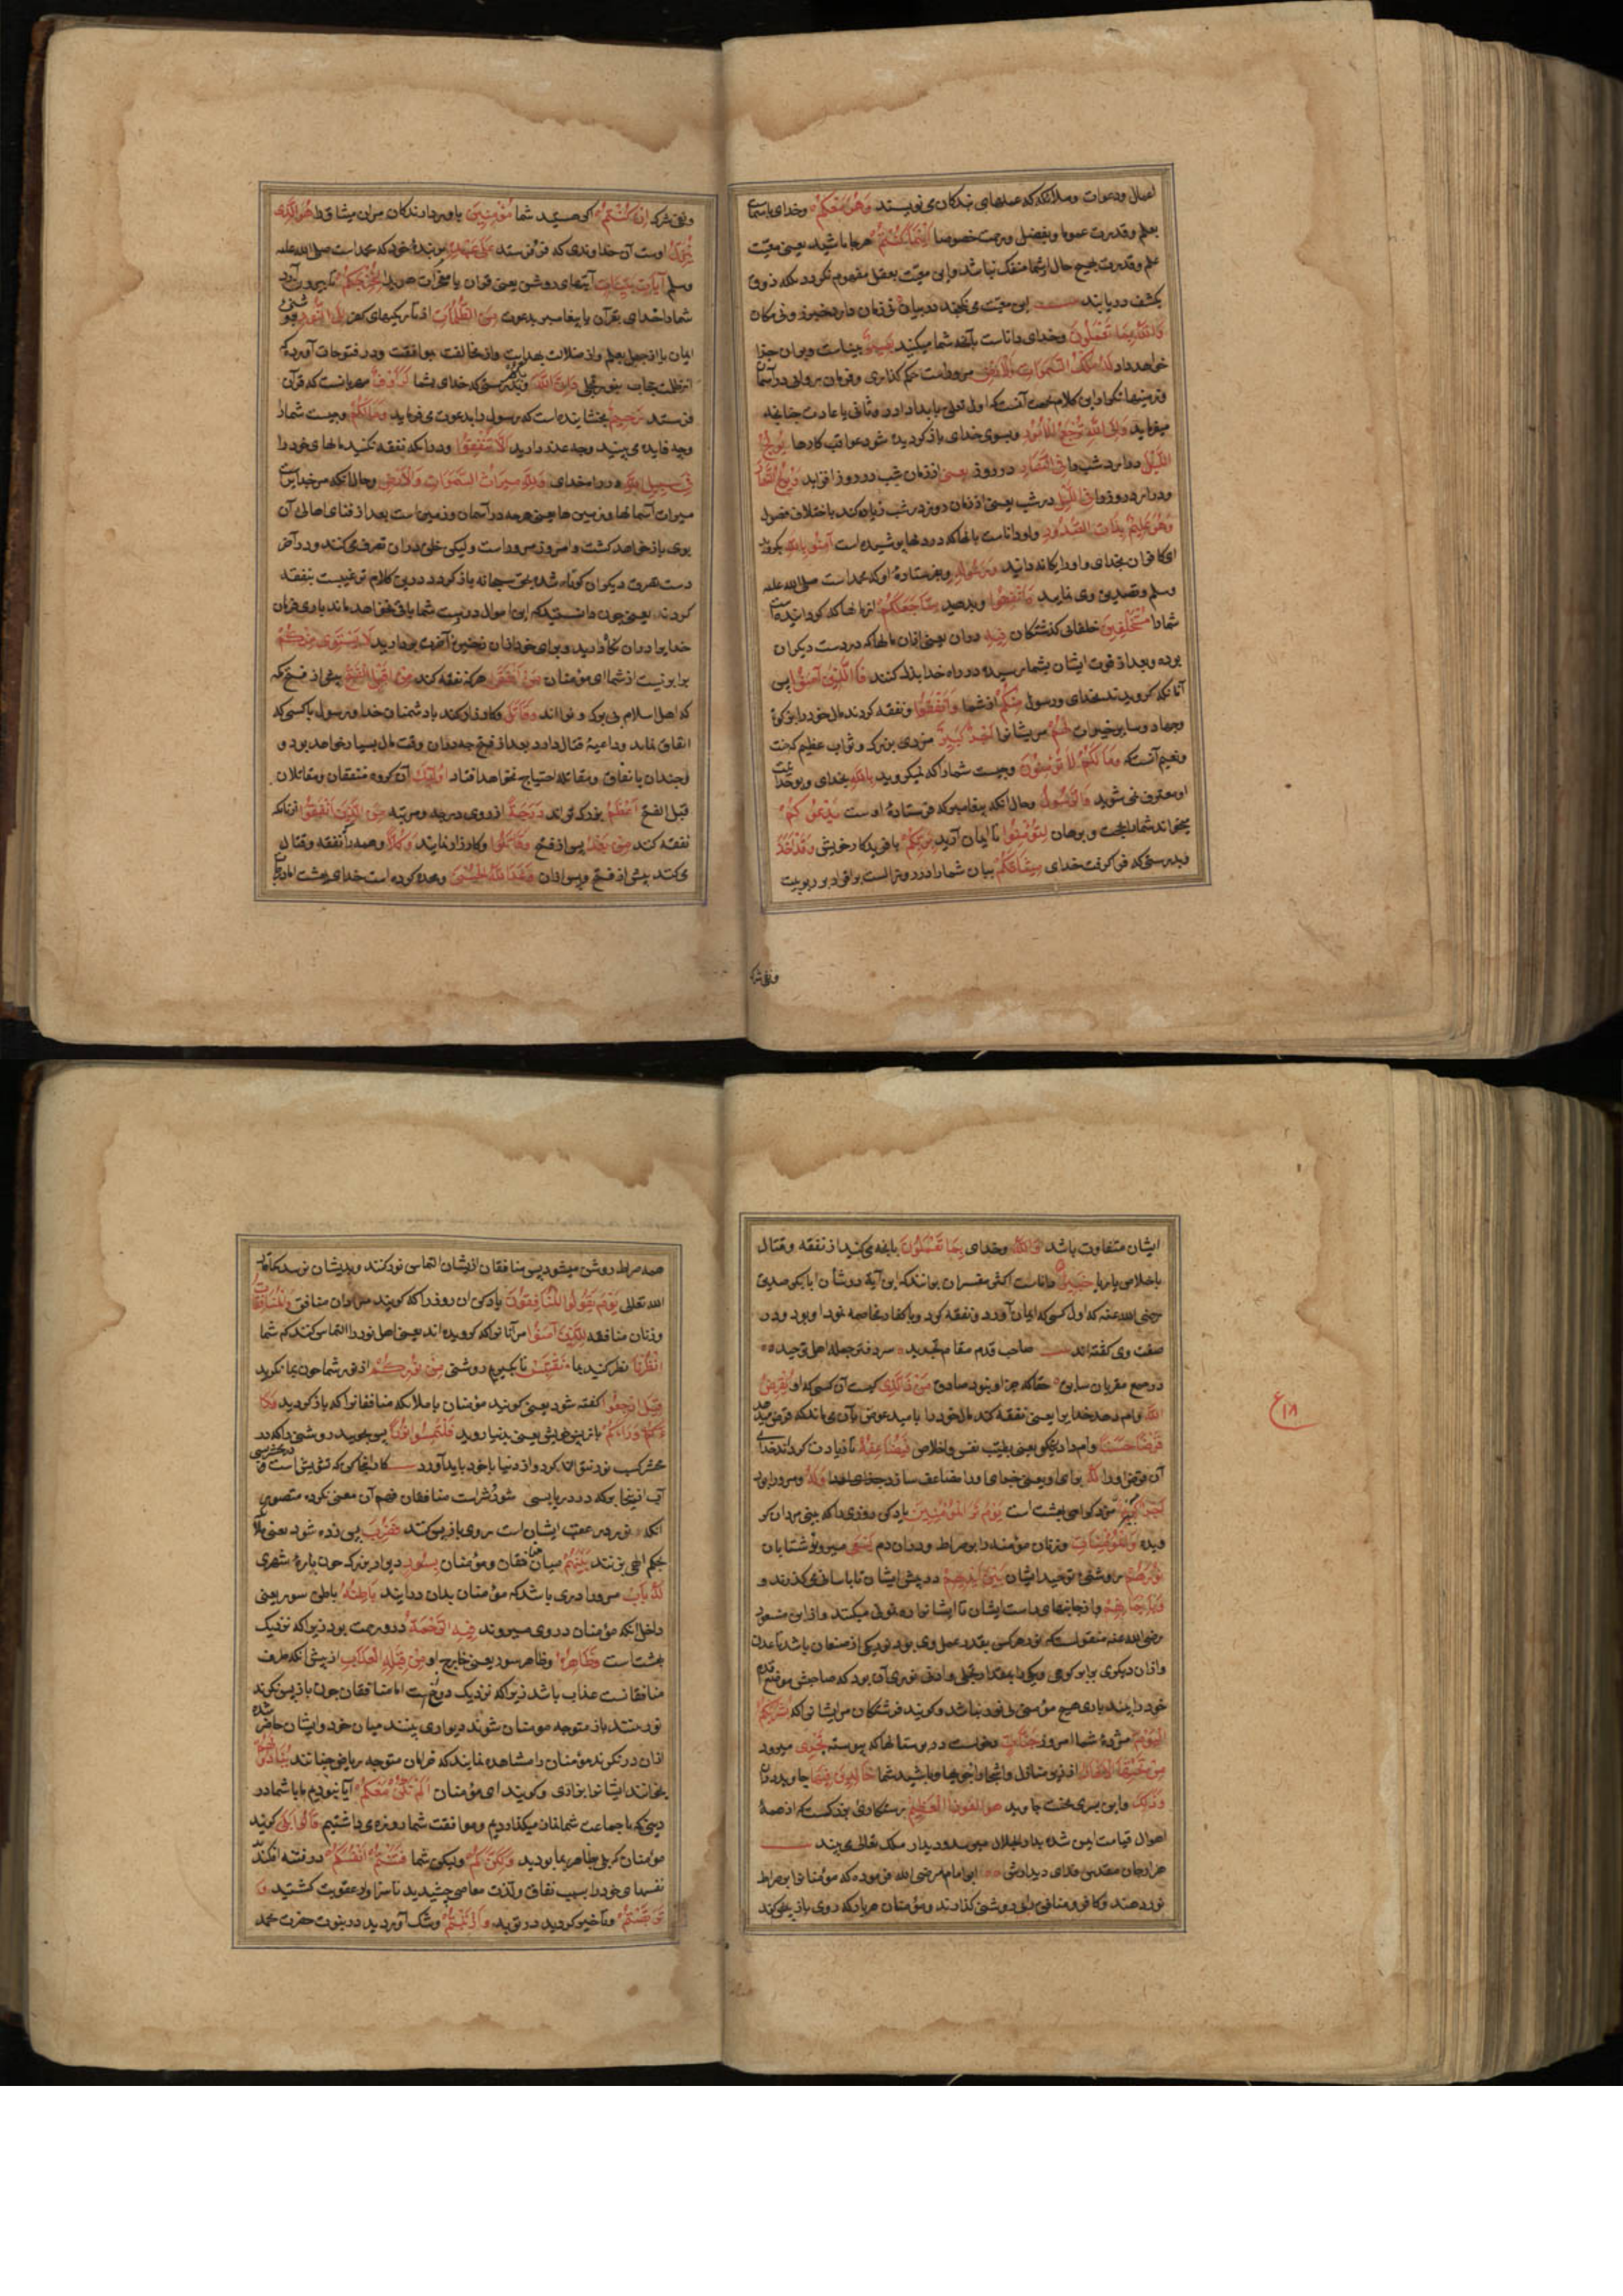 اعمال ودعوات وملائکه که عملهای بندکان می نویسند وَهُوَ مَعَكُمْ وخدای باشماست
بعلم وقدرت عموما وبفضل ورحمت خصوصا اَيْنَمَا كُنْتُمْ هرجا باشید یعنی معیت
علم وقدرت بهیچ حال ازشما منفک نباشد واین معیت بعقل مفهوم نکردد بلکه ذوق
بکشف دریابند این معیت می نکنجد دربیان نی زمان دارد خبرزو ونی مکان
وَاللّٰهُ بِمَا تَعْمَلُونَ وخدای داناست بآنچه شما میکنید بَصِيرٌ بیناست وبران جزا
خواهد داد لَهُ مُلْكُ السَّمٰوَاتِ وَالْاَرْضِ مروراست حکم کذاری وفرمان روانی درآسمان
وزمینها تکرار این کلام جهت آنست که اول تعلق بابدا دارد وثانی باعادت چنانچه
میفرماید وَاِلَى اللّٰهِ تُرْجَعُ الْاُمُورُ وبسوی خدای بازکردیده شود عواقب کارها يُولِجُ
اللَّيْلَ درارد شب را فِي النَّهَارِ درروز یعنی اززمان شب درروز افزاید وَيُولِجُ النَّهَارَ
ودرارد روزرا فِي اللَّيْلِ درشب یعنی اززمان روز درشب زیاده کند باختلاف فصول
وَهُوَ عَلِيمٌ بِذَاتِ الصُّدُورِ واو داناست بانچه که دردلها پوشیده است آمِنُوا بِاللّٰهِ بکروید
ای کافران بخدای واورا یکانه دانید وَرَسُولِهِ وبفرستادهٔ اوکه محمد است صلی الله علیه
وسلم وتصدیق وی نمایید وَاَنْفِقُوا وبدهید مِمَّا جَعَلَكُمْ ازمالها که کردانیده است
شمارا مُسْتَخْلَفِينَ خلفای کذشتکان فِيهِ دران یعنی ازان مالها که دردست دیکران
بوده وبعد از فوت ایشان بشما رسیده درراه خدا بذل کنند فَالَّذِينَ آمَنُوا پس
آنانکه کرویدند بخدای ورسول مِنْكُمْ ازشما وَاَنْفَقُوا ونفقه کردند مال خودرا
وجهاد وسایر خیرات لَهُمْ مرایشانرا اَجْرٌ كَبِيرٌ مزدی بزرک وثواب عظیم که جنت
ونعیم آنست وَمَا لَكُمْ لَا تُؤْمِنُونَ وچیست شمارا که نمیکروید بِاللّٰهِ بخدای
او معترف نمی شوید وَالرَّسُولُ وحال آنکه پیغامبر که فرستادهٔ اوست يَدْعُوكُمْ
میخواند شمارا بحجت وبرهان لِتُؤْمِنُوا تا ایمان آرید بِرَبِّكُمْ بافریدکار خویش وَقَدْ اَخَذَ
وبدرستی که فراکرفت خدای مِيثَاقَكُمْ پیمان شمارا درروز الست براقرار بربوبیت
ونفی شرک
ونفی شرک اِنْ كُنْتُمْ اکر هستید شما مُؤْمِنِينَ باوردارندکان مران میثاق را هُوَ الَّذِي
يُنَزِّلُ اوست آن خداوندی که فرو فرستد عَلٰى عَبْدِهِ بربندهٔ خود که محمد است صلی الله علیه
وسلم آيَاتٍ بَيِّنَاتٍ آیتهای روشن یعنی قرآن یا معجزات هویدا لِيُخْرِجَكُمْ تا بیرون آرد
شمارا خدای بقرآن یا پیغامبر بدعوت مِنَ الظُّلُمَاتِ ازتاریکیهای کفر اِلَى النُّورِ
ایمان یا ازجهل بعلم واز ضلالت بهدایت واز مخالفت بموافقت ودر فتوحات آورده که
ازظلمت حجاب بنور تجلی وَاِنَّ اللّٰهَ وبدرستی که خدای بشما لَرَؤُفٌ مهربانست که قرآن
فرستد رَحِيمٌ بخشاینده است که رسول را بدعوت می فرماید وَمَا لَكُمْ وچیست شمارا
وچه فایده می بینید وچه عذر دارید اَلَّا تُنْفِقُوا ودرآنکه نفقه نکنید مالهای خودرا
فِي سَبِيلِ اللّٰهِ درراه خدای وَلِلّٰهِ مِيرَاثُ السَّمٰوَاتِ وَالْاَرْضِ وحال آنکه مرخدایراست
میراث آسمانها وزمین ها یعنی هرچه درآسمان وزمین است بعد از فنای اهالی آن
بوی باز خواهد کشت وامروز مروراست ولیکن خلق دران تصرف می کنند ودرآخر
دست تصرف دیکران کوتاه شده بحق سبحانه بازکردد درین کلام ترغیبست بنفقه
کردن یعنی چون دانستید که این اموال دردست شما باقی نخواهد ماند باری فرمان
خدایرا دران نکاه دارید وبرای خود ازان نصیب آخرت بردارید لَا يَسْتَوِي مِنْكُمْ
برابر نیست ازشما ای مؤمنان مَنْ اَنْفَقَ هرکه نفقه کند مِنْ قَبْلِ الْفَتْحِ پیش از فتح مکه
که اهل اسلام بی برک ونوا اند وَقَاتَلَ وکارزار کند با دشمنان خدا ورسول با کسی که
انفاق نماید وداعیهٔ قتال دارد بعد از فتح چه دران وقت مال بسیار خواهد بود و
چندان بانفاق ومقاتله احتیاج نخواهد افتاد اُولٰئِكَ آن کروه منفقان ومقاتلان
قبل الفتح اَعْظَمُ بزرکتراند دَرَجَةً ازروی درجه ومرتبه مِنَ الَّذِينَ اَنْفَقُوا ازآنانکه
نفقه کنند مِنْ بَعْدُ پس از فتح وَقَاتَلُوا وکارزار نمایند وَكُلًّا وهمه را نفقه وقتال
می کنند پیش از فتح وپس ازان وَعَدَ اللّٰهُ الْحُسْنٰى وعده کرده است خدای بهشت
ایشان متفاوت باشد وَاللّٰهُ وخدای بِمَا تَعْمَلُونَ بانچه می کنید از نفقه وقتال
باخلاص یا ریا خَبِيرٌ داناست اکثر مفسران برانند که این آیة درشان ابابکر صدیق
رضی الله عنه که اول کسی که ایمان آورد ونفقه کرد وبا کفار مخاصمه نمود او بود ودر
صفت وی کفته اند صاحب قدم مقام تجرید سردفتر جمله اهل توحید
درجمع مقربان سابق حقا که چو او نبود صادق مَنْ ذَا الَّذِي کیست آن کسی که او يُقْرِضُ
اللّٰهَ وام دهد خدایرا یعنی نفقه کند مال خودرا بامید عوض
قَرْضًا حَسَنًا وام دادن نیکو یعنی بطیب نفس واخلاص فَيُضَاعِفَهُ تا زیادت کرداند خدای
آن قرض اورا لَهُ برای او یعنی جزای ورا مضاعف سازد وَلَهُ ومروراست
اَجْرٌ كَرِيمٌ مزد کرامی بهشت است يَوْمَ تَرَى الْمُؤْمِنِينَ یادکن روزی را که بینی مردان کرو
ویده وَالْمُؤْمِنَاتِ وزنان مؤمنه را برصراط ودران دم يَسْعٰى میرود شتابان
نُورُهُمْ روشنئ توحید ایشان بَيْنَ اَيْدِيهِمْ درپیش ایشان تا باسانی می کذرند و
وَبِاَيْمَانِهِمْ وازجانبهای راست ایشان تا ایشانرا رهنمونی میکند واز ابن مسعود
رضی الله عنه منقولست که نور هرکس بقدر عمل وی بود نور یکی از صنعان باشد تا عدن
وازان دیکری برابر کوهی ویکی را بمقدار نخلی وادنی نوری آن بود که صاحبش موضع قدم
خودرا بیند باری هیچ مؤمن بی نور نباشد وکویند فرشتکان مرایشانرا که بُشْرٰيكُمُ
الْيَوْمَ مژدهٔ شما امروز جَنَّاتٌ دخولست در بوستانها که پیوسته تَجْرِي میرود
مِنْ تَحْتِهَا الْاَنْهَارُ اززیر منازل واشجار جویها وباشید شما خَالِدِينَ فِيهَا جاوید دران
وَذٰلِكَ واین بسری بجنت جاوید هُوَ الْفَوْزُ الْعَظِيمُ رستکاری بزرکست که از همهٔ
اهوال قیامت ایمن شده بدار الجلال میرسند ودیدار ملک تعالی می بیند
هزار جان مقدس فدای دیدارش ابی امامه رضی الله عنه فرموده که مؤمنانرا برصراط
نور دهند وکافر ومنافق بی روشنی کذارند ومؤمنان هربار که روی بازپس کنند
ع ۱۸
همه صراط روشن میشود پس منافقان ازیشان التماس نور کنند وبدیشان نرسد کما قال
الله تعالی يَوْمَ يَقُولُ الْمُنَافِقُونَ یادکن ان روزرا که کویند مردان منافق وَالْمُنَافِقَاتُ
وزنان منافقه لِلَّذِينَ آمَنُوا مرآنانرا که کرویده اند یعنی اهل نوررا التماس کنند که شما
انْظُرُونَا نظر کنید بما نَقْتَبِسْ تا بکیریم روشنی مِنْ نُورِكُمْ ازنور شما چون بما نکرید
قِيلَ ارْجِعُوا کفته شود یعنی کویند مؤمنان یا ملائکه منافقانرا که بازکردید
وَرَاءَكُمْ بازپس خویش یعنی بدنیا روید فَالْتَمِسُوا نُورًا پس بجویید روشنی را که در
محشر کسب نور نتوان کرد واز دنیا با خود باید آورد کار اینجا کن که تشویش است
آب ازینجا بر که دردریا بسی شور وشراست منافقان فهم آن معنی نکرده متصور
آنکه نور درعقب ایشان است روی بازپس کنند فَضُرِبَ پس زده شود یعنی ملائکه
بحکم الهی بزنند بَيْنَهُمْ میان منافقان ومؤمنان بِسُورٍ دیوار بزرک چون بارهٔ شهری
لَهُ بَابٌ مرورا دری باشد که مؤمنان بدان درآیند بَاطِنُهُ باطن سور یعنی
داخل آنکه مؤمنان درو میروند فِيهِ الرَّحْمَةُ درو رحمت بود زیرا که نزدیک
بهشت است وَظَاهِرُهُ وظاهر سور یعنی خارج او مِنْ قِبَلِهِ الْعَذَابُ ازپیش آنکه طرف
منافقانست عذاب باشد زیرا که نزدیک دوزخ است اما منافقان چون بازپس نکرند
نور نبینند باز متوجه مومنان شوند دیواری بینند میان خود وایشان حاضر شده
ازان درنکرند مؤمنان را مشاهده نمایند که خرامان متوجه ریاض جنانند يُنَادُونَهُمْ
بخوانند ایشانرا بزاری وکویند ای مؤمنان اَلَمْ نَكُنْ مَعَكُمْ آیا نبودیم ما با شما در
دینی که با جماعت شما نماز میکذاردیم وموافقت شما روزه می داشتیم قَالُوا بَلٰى کویند
مؤمنان که بلی بظاهر با ما بودید وَلٰكِنَّكُمْ ولیکن شما فَتَنْتُمْ اَنْفُسَكُمْ درفتنه افکندید
نفسهای خودرا بسبب نفاق ولذت معاصی چشیدید تا سزاوار عقوبت کشتید وَ
تَرَبَّصْتُمْ وتأخیر کردید درتوبه وَارْتَبْتُمْ وشک آوردید درنبوت حضرت محمد